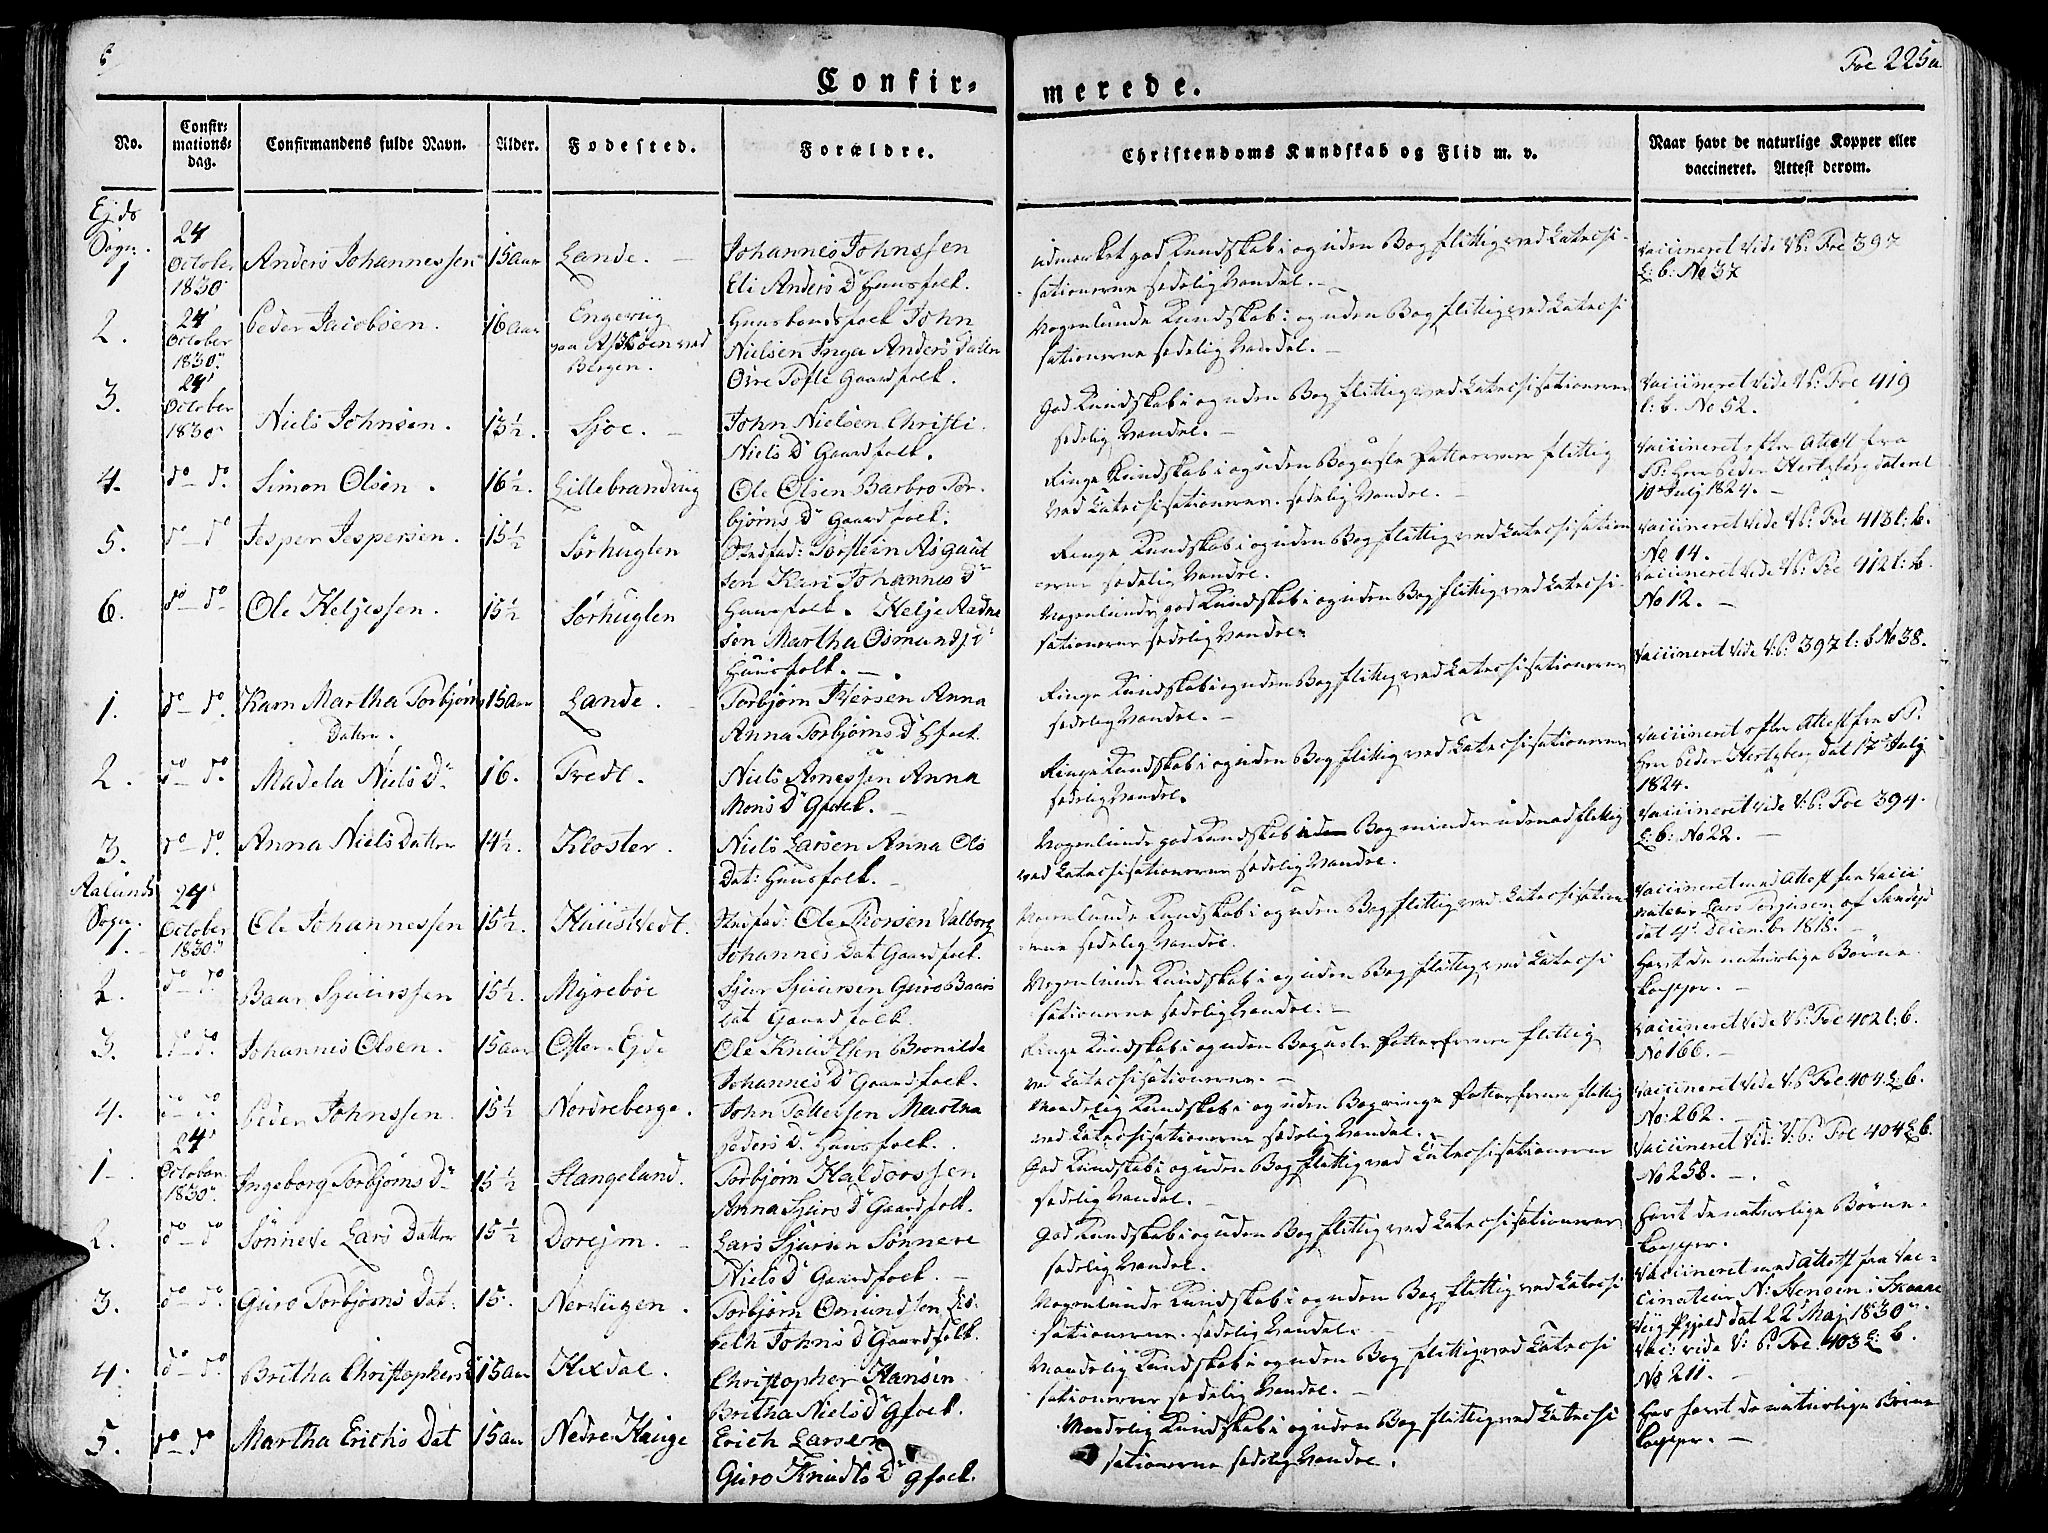 Confir-
merede.
Foe 225a
No.
Confir-
mations-
dag.
Confirmandens fulde Navn.
Alder.
Fodested.
Forældre.
Christendoms Kundskab og Flid m. v.
Naar havt de naturlige Kopper eller
vaccineret. Attest derom.
Ejds
Sogn.
1
24
October
1830
Anders Johannessen
15 aar
Lande.
Johannes Johnssen
Eli Anders Dr Huusfolk.
udmærket god Kundskab i og uden Bog flittig ved Catechi-
sationerne sædelig Vandel.
vaccineret vide V: P: Foe 397
L: b: No 37
2.
24
October
1830.
Peder Jacobsen.
16 aar
Engevig
paa Askøen ved
Bergen.
Huusbondsfolk John
Nielsen Inga Anders Datter
Øvre Tofte Gaardfolk.
Nogenlunde Kundskab i og uden Bog flittig ved Catechi
sationerne sædelig Vandel.
3.
24
October
1830
Niels Johnsen.
15½.
Sjoe.
John Nielsen Christi
Niels Dr Gaardfolk.
God Kundskab i og uden Bog flittig ved Catechisationerne
sædelig Vandel.
vaccineret vide V: P: Foe 419
L: b. No 52.
4.
do do.
Simon Olsen.
16½.
Lillebrandvig
Ole Olsen Barbro Tor-
bjørns Dr Gaardfolk.
Ringe Kundskab i og uden Bog usle Fatteevner flittig
ved Catechisationerne. sædelig Vandel.
vaccineret efter Attest fra
Sp: Hrr Peder Hertzberg dateret
10 Julj 1824.
5.
do do
Jesper Jespersen.
15½
Sørhuglen
Stedfad: Torstein Asgaut
sen Kari Johannes Dr
Huusfolk.
Ringe Kundskab i og uden Bog flittig ved Catechisation
erne sædelig Vandel.
vaccineret vide V: P: Foe 413 L: b.
No 14.
6.
do do.
Ole Heljessen.
15½
Sørhuglen
Helje Aadne
sen Martha Osmunds Dr
Huusfolk.
Nogenlunde god Kundskab i og uden Bog flittig ved Catechi-
sationerne sædelig Vandel.
vaccineret vide V: P: Foe 412 L: b.
No 12.
1.
do do.
Karn Martha Torbjørns
Datter.
15 aar
Lande.
Torbjørn Iversen Anna
Anna Torbjørns Dr Hfolk.
Ringe Kundskab i og uden Bog flittig ved Catechisationerne
sædelig Vandel.
vaccineret vide V: P: 397 L: b No 38.
2.
do do.
Madela Niels Dr
16.
Tredt.
Niels Arnessen Anna
Mons Dr Gfolk.
Ringe Kundskab i og uden Bog flittig ved Catechisationerne
sædelig Vandel.
vaccineret efter Attest fra SP:
Hrr Peder Hertzberg dat 17 Julj
1824.
3.
do do.
Anna Niels Datter
14½.
Kloster.
Niels Larsen Anna Ols
Dat: Huusfolk.
Nogenlunde god Kundskab i Bog mindre uden ad flittig
ved Catechisationerne sædelig Vandel.
vaccineret vide V: P: Foe 394.
L: b: No 22.
Aalunds
Sogn.
1.
24
October
1830.
Ole Johannessen
15½.
Huustvedt.
Stedfad: Ole Thorsen Valborg
Johannes Dat Gaardfolk.
Nogenlunde Kundskab i og uden Bog flittig ved Catechisation
erne sædelig Vandel.
vaccineret med Attest fra vacci
nateur Lars Torgersen af Sandejd
dat 4 Decemb: 1818.
2.
do do
Baar Sjuurssen
15½.
Myreboe
Sjur Sjuursen Guro Baars
Dat Gaardfolk.
Nogenlunde Kundskab i og uden Bog flittig ved Catechi
sationerne sædelig Vandel.
havt de naturlige Børne
kopper.
3.
do do.
Johannes Olsen.
15 aar
Øster Ejde
Ole Knudtsen Bronilde
Johannes Dr Gaardfolk.
Ringe Kundskab i og uden Bog usle Fatteevner flittig
ved Catechisationerne.
vaccineret vide V: P: Foe 402 L: b.
No 166.
4.
do do.
Peder Johnssen
15½
Nordreberge.
John Tollefsen Martha
Peders Dr Huusfolk.
Maadelig Kundskab i og uden Bog ringe Fatteevner flittig
ved Catechisationerne sædelig Vandel.
vaccineret vide V: P Foe 404 L: b.
No: 262.
1
24
October
1830.
Ingeborg Torbjørns Dr
15½
Stangeland.
Torbjørn Haldorssen
Anna Sjurs Dr Gaardfolk.
God Kundskab i og uden Bog flittig ved Catechisationerne
sædelig Vandel.
vaccineret vid: V: P: Foe 404 L: b.
No 258.
2.
do do
Sønneve Lars Datter
15½
Dorejm.
Lars Sjursen Sønneve
Niels Dr Gaardfolk.
God Kundskab i og uden Bog flittig ved Catechisationerne
sædelig Vandel.
havt de naturlige Børne-
kopper.
3.
do do.
Guro Torbjørns Dat:
15.
Nervigen.
Torbjørn Omundsen Lis-
beth Johns Dr Gaardfolk.
Nogenlunde Kundskab i og uden Bog flittig ved Catechi
sationerne. sædelig Vandel.
vaccineret med Attest fra vac-
cinateur N: Stensen i Skaane
vig Pgjeld dat 22 Maj 1830.
4.
do do.
Britha Christophers D
15 aar
Hixdal.
Christopher Hansen
Britha Niels Dr Gfolk.
Maadelig Kundskab i og uden Bog flittig ved Catechi
sationerne sædelig Vandel.
Vac: vide V: P: Foe 403 L: b.
No 211.
5.
do do
Martha Erichs Dat
15 aar
Nedre Hauge
Erich Larsen
Guro Knudts Dr Gfolk.
Maadelig Kundskab i og uden Bog flittig ved Catechi
sationerne sædelig Vandel.
har havt de naturlige Børne
kopper.